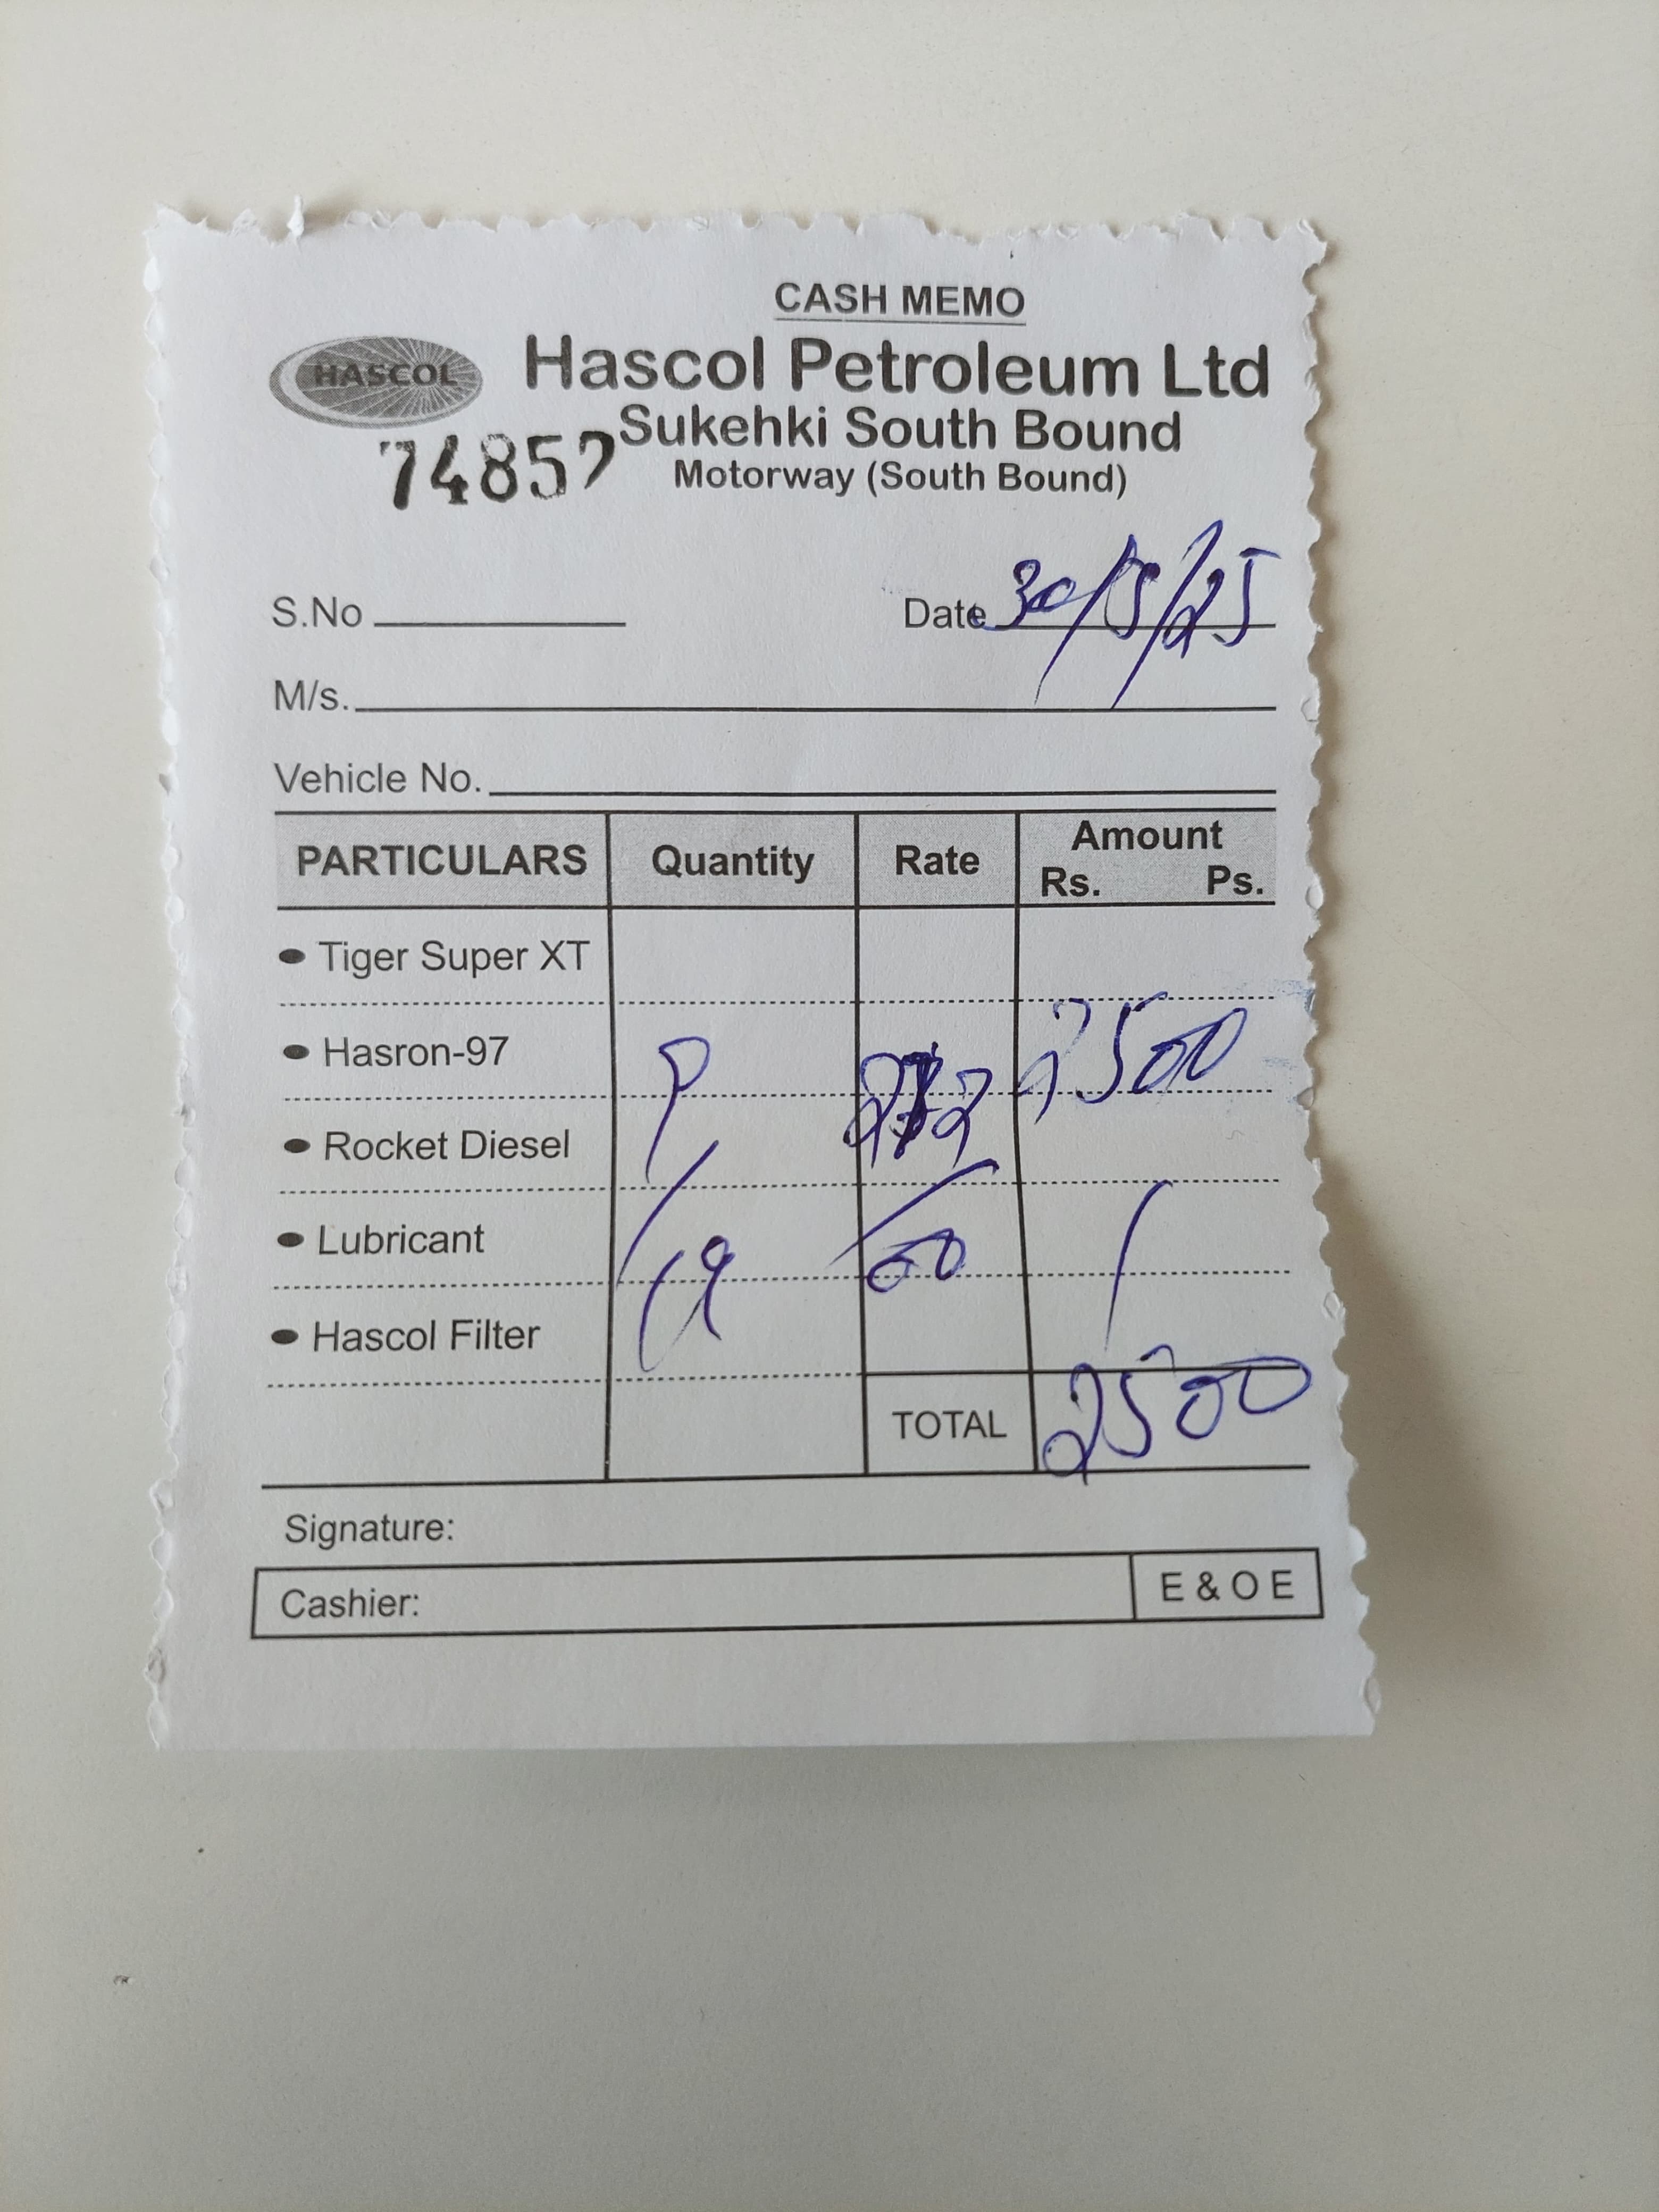 CASH MEMO
HASCOL
Hascol Petroleum Ltd
Sukehki South Bound
74852
Motorway (South Bound)
S.No
Date 30/5/25
M/s.
Vehicle No.
PARTICULARS Quantity Rate Amount
Rs. Ps.
• Tiger Super XT
• Hasron-97 2500
• Rocket Diesel
• Lubricant
• Hascol Filter
TOTAL 2500
Signature:
Cashier: E & O E